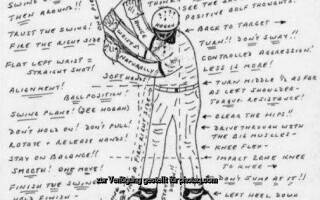 SWING
THEN AROUND!!
TRUST THE SWING!
FIRE THE RIGHT SIDE
FLAT LEFT WRIST =
STRAIGHT SHOT!
ALIGNMENT!
BALL POSITION!
SWING PLANE! (SEE HOGAN)
DON'T HOLD ON! DON'T PULL!
ROTATE & RELEASE HANDS!
STAY ON BALANCE!!
SMOOTH! ONE MOVE!
FINISH THE SWING
HOLD FINISH
HINGE
WRISTS
NATURALLY
SOFT
HOGAN
SEE THE
POSITIVE GOLF THOUGHTS.
BACK TO TARGET
TURN!! DON'T SWAY!!
CONTROLLED AGGRESSION!
LESS IS MORE!
TURN MIDDLE 1/2 AS FAR
AS LEFT SHOULDER-
TORQUE! RESISTANCE!
CLEAR THE HIPS!!
DRIVE THROUGH WITH
THE BIG MUSCLES-
KNEE FLEX-
IMPACT ZONE KNEE
TO KNEE
DON'T JUMP AT IT!!
LEFT HEEL DOWN
zur Verfügung gestellt für photos.com